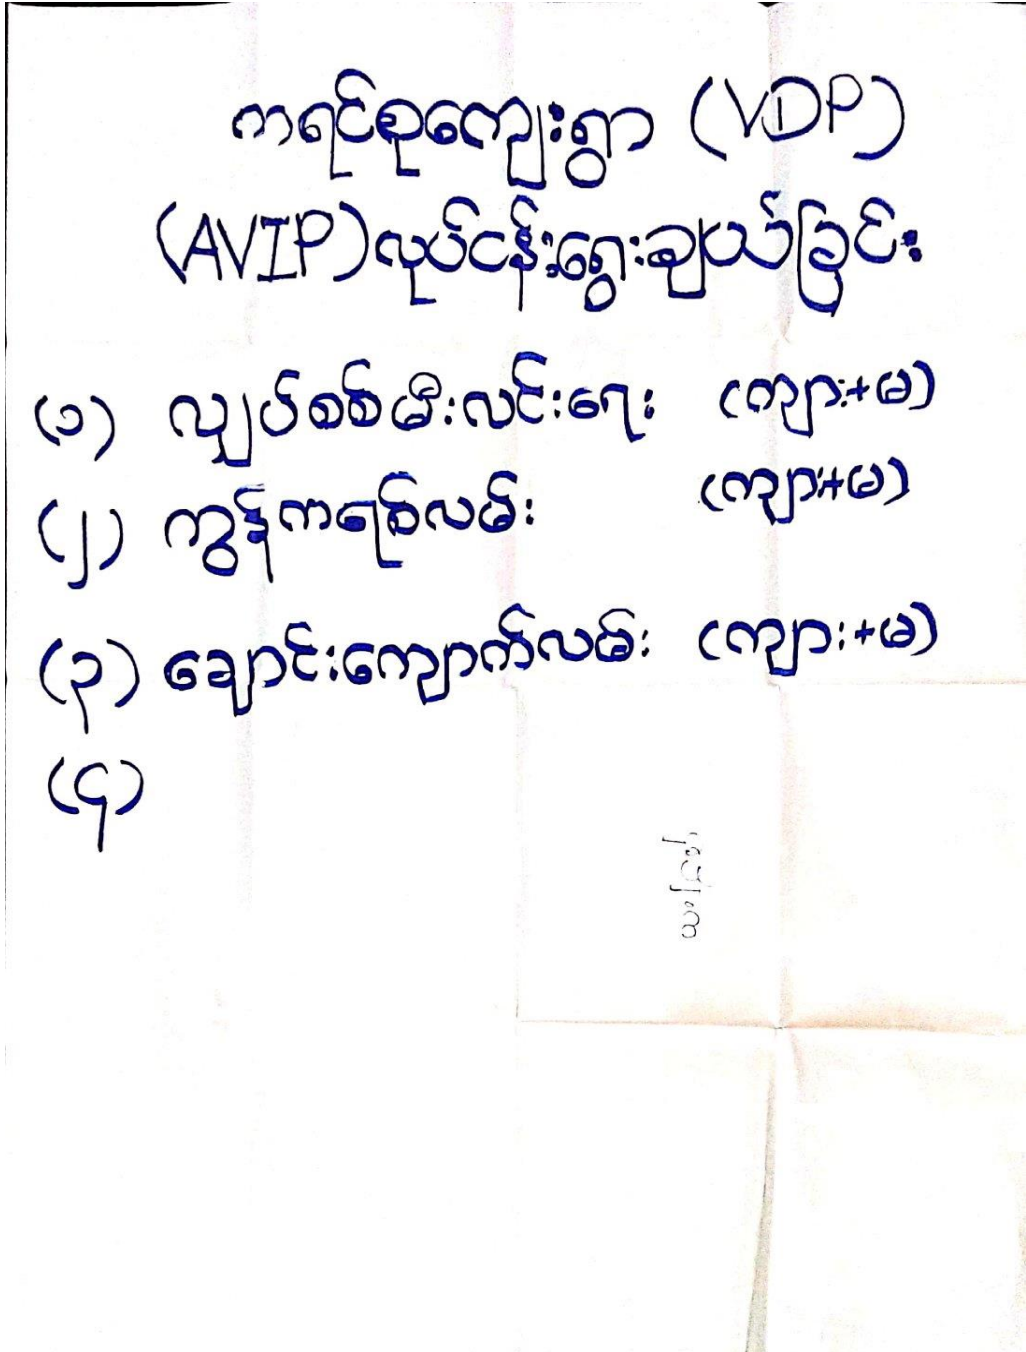 ကရင်စုကျေးရွာ (VDP)
(AVIP)လုပ်ငန်းရွေးချယ်ခြင်း
(၁) လျှပ်စစ်မီးလင်းရေး (ကျား+မ)
(၂) ကွန်ကရစ်လမ်း (ကျား+မ)
(၃) ချောင်းကျောက်လမ်း (ကျား+မ)
(၄)